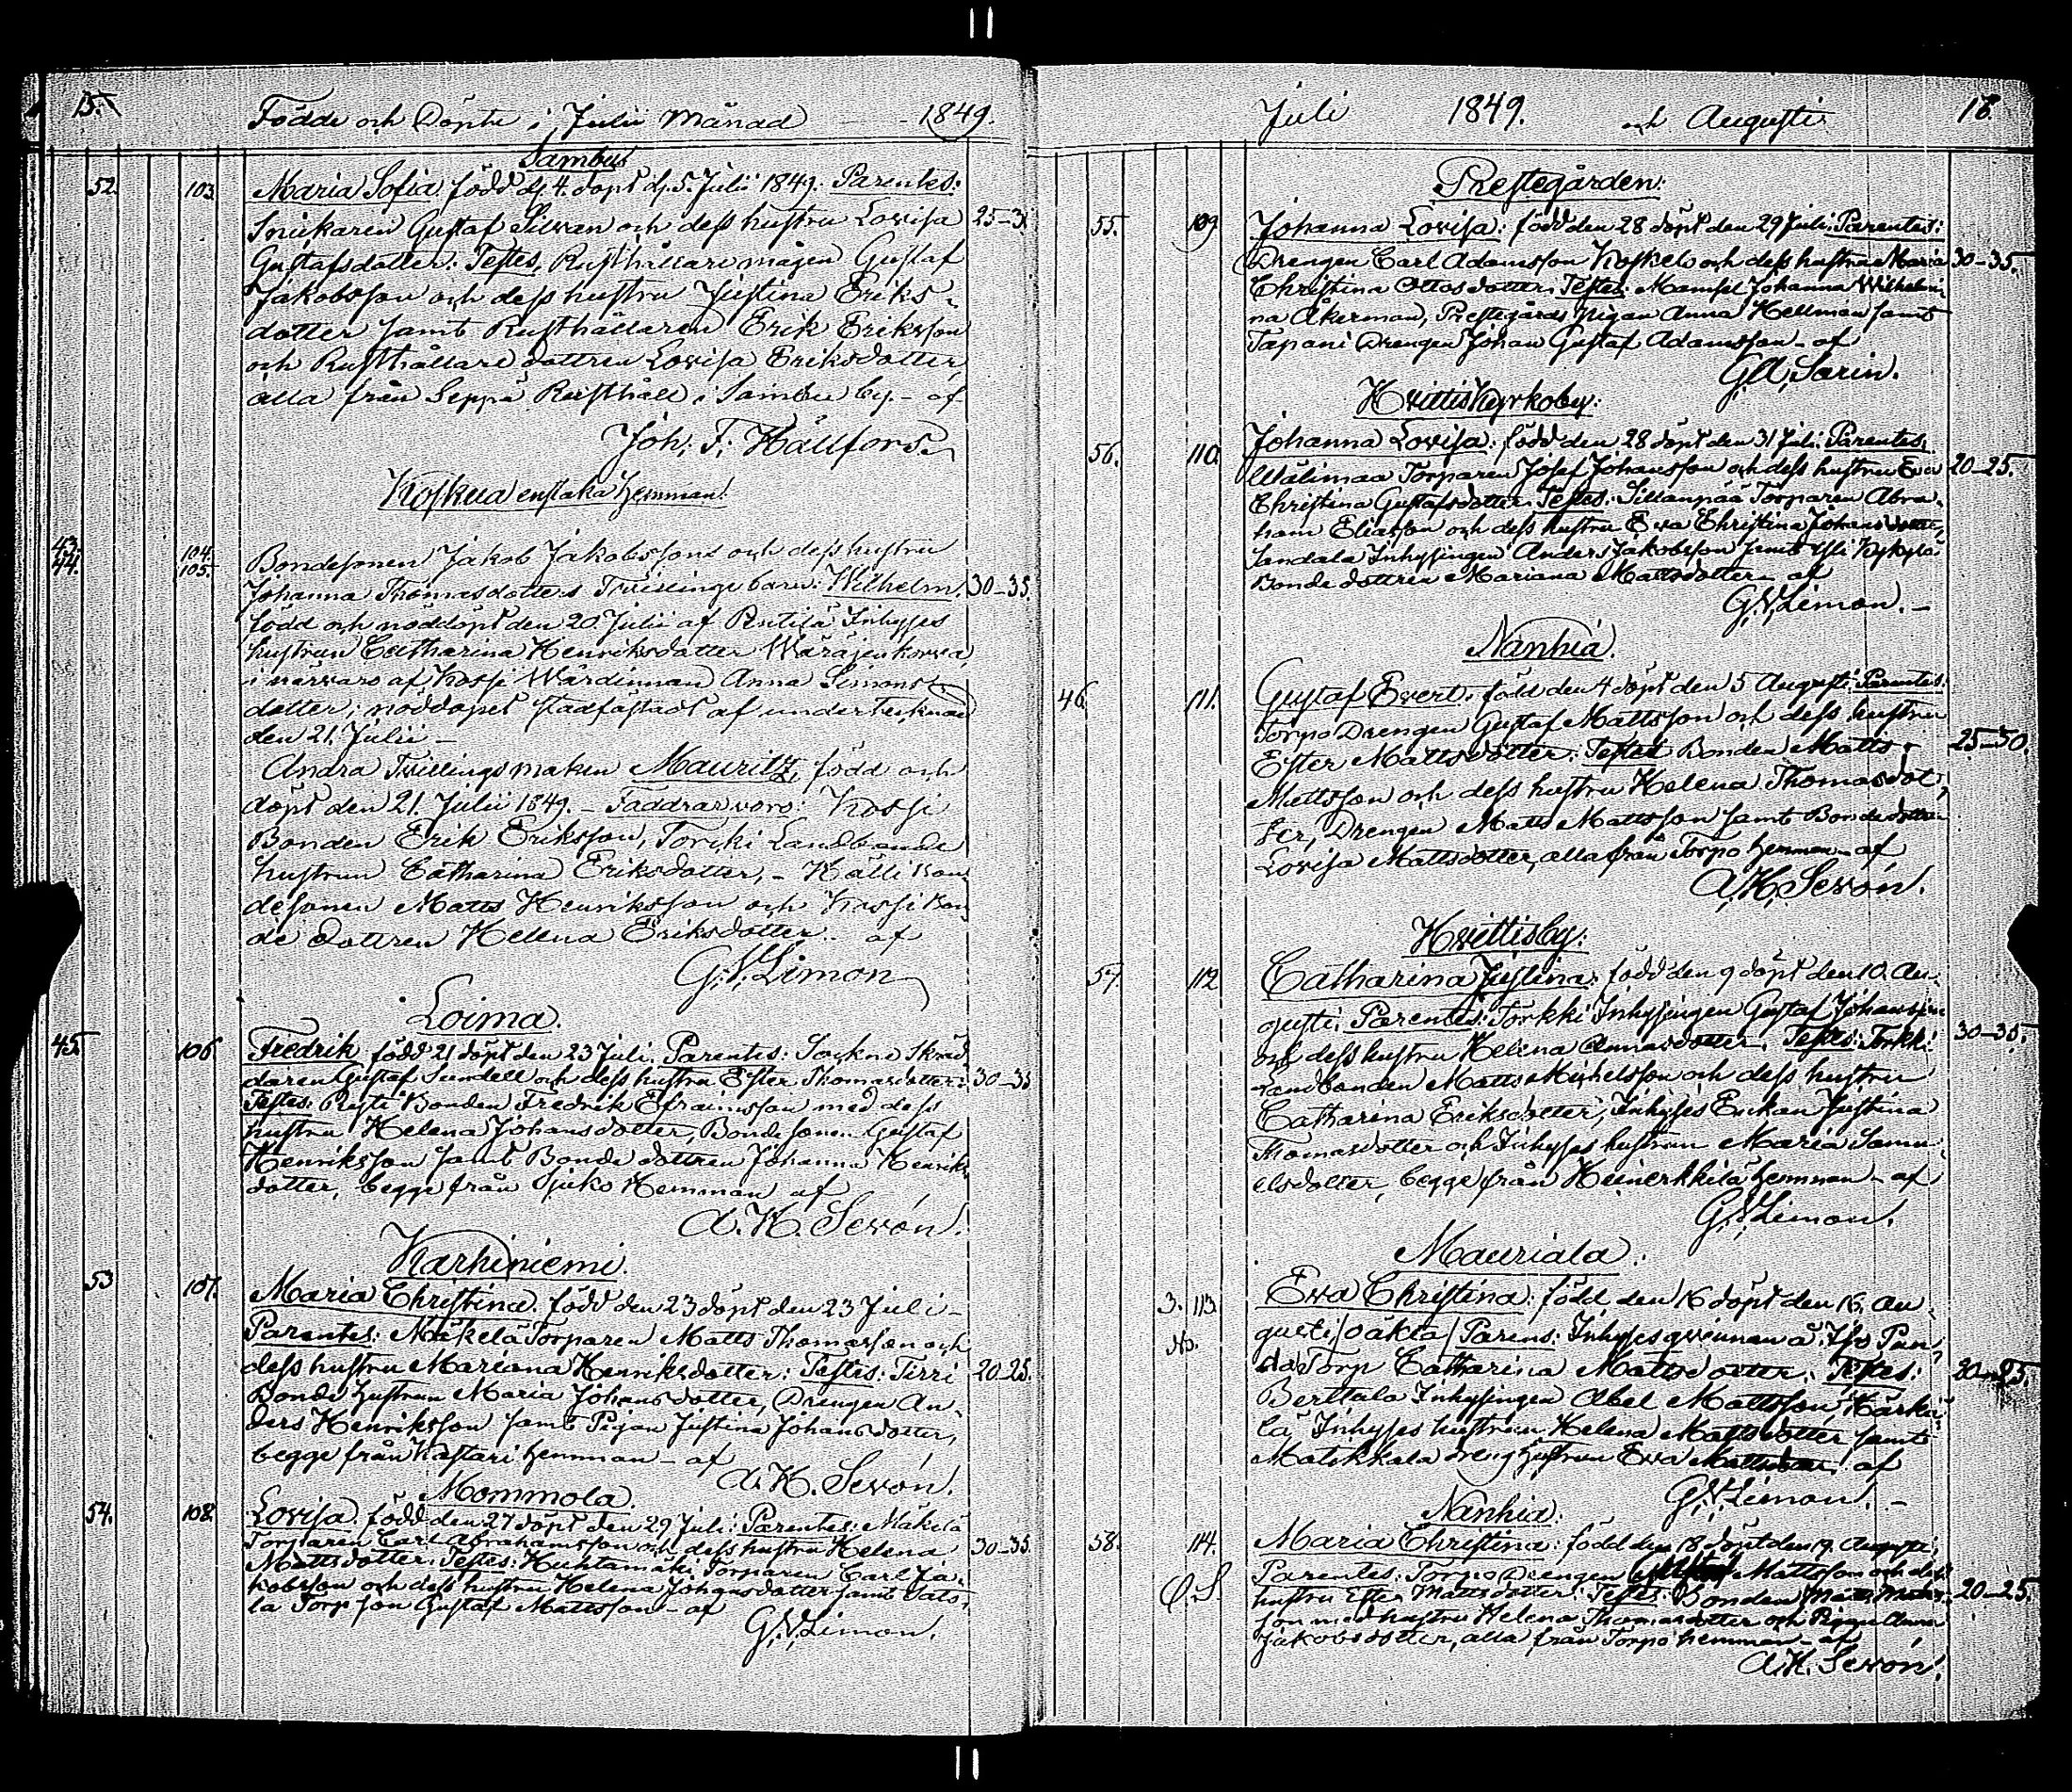 15.
Födde och Döpte i Julii Månad - 1849.
Sambu
52. 103. Maria Sofia född d. 4. döpt d. 5. Julii 1849. Parentes:
Snickaren Gustaf Silvan och dess hustru Lovisa 25-3
Gustafsdotter: Testes, Rusthållare mågen Gustaf
Jakobsson och dess hustru Justina Eriks-
dotter samt Rusthållaren Erik Eriksson
och Rusthållare dottren Lovisa Eriksdotter,
alla från Seppä Rusthåll i Sambu by. - af
Joh. F. Hällfors.
Koskua enstaka hemman:
43. 104.
44. 105. Bondesonen Jakob Jakobssons och dess hustru
Johanna Thomasdotters Tvillinge barn: Wilhelm, 30-35.
född och nöddöpt den 20. Julii af Pentilä Inhyses
hustrun Catharina Henriksdotter Wäräjenkorva,
i närvaro af Kossi Wärdinnan Anna Simons-
dotter; nöddopet stadfästadt af undertecknad
den 21. Julii -
Andra Tvillings maken Mauritz, född och
döpt den 21. Julii 1849. - Faddrar voro: Kossi
Bonden Erik Eriksson, Torcki Landbonde
hustrun Catharina Eriksdotter, - Källi Bon-
desonen Matts Henriksson och Kossi Bon-
de dottren Helena Eriksdotter.. af
G. V. Limon
Loima.
45. 106. Fredrik född 21 döpt den 23 Juli. Parentes: Sockne Skräd-
daren Gustaf Sundell och dess hustru Ester Thomasdotter: 30-35
Testes: Risti Bonden Fredrik Efraimsson med dess
hustru Helena Johansdotter, Bondesonen Gustaf
Henriksson samt Bonde dottren Johanna Henriks-
dotter, begge från Sjuko Hemman af
A. H. Sevón.
Karhiniemi.
53 107. Maria Christina. född den 23 döpt den 23 Juli -
Parentes: Mäkelä Torparen Matts Thomasson och
dess hustru Mariana Henriksdotter: Testes: Tirri 20-25.
Bonde hustrun Maria Johansdotter, Drengen An-
ders Henriksson samt Pigan Justina Johansdotter,
begge från Kastari hemman - af
A. H. Sevón.
Mommola.
54. 108. Lovisa. född den 27 döpt den 29 Juli: Parentes: Mäkelä
Torparen Carl Abrahamsson och dess hustru Helena 30-35.
Mattsdotter: Testes: Huhtamäki Torparen Carl Ja-
kobsson och dess hustru Helena Johansdotter samt Sato-
la Torp son Gustaf Mattsson - af
G. V. Limon.
Juli 1849. och Augusti 16.
Prestegården:
55. 109. Johanna Lovisa: född den 28 döpt den 29 Juli: Parentes:
Drengen Carl Adamsson Koskelo och dess hustru Maria 30-35.
Christina Ottosdotter: Testes: Mamsel Johanna Wilhelmi-
na Åkerman, Prestegårds Pigan Anna Hellman samt
Tapani Drengen Johan Gustaf Adamsson - af
G. A. Sarin.
Hvittis Kyrkoby:
56. 110. Johanna Lovisa: född den 28 döpt den 31 Juli: Parentes:
Wälimaa Torparen Josef Johansson och dess hustru Eva 20-25.
Christina Gustafsdotter: Testes: Sillanpää Torparen Abra-
ham Eliasson och dess hustru Eva Christina Johansdotter,
Sandala Inhysingen Anders Jakobsson samt Yli Kykylä
Bonde dottren Mariana Mattsdotter - af
G. V. Limon. -
Nanhia.
46. 111. Gustaf Evert. född den 4 döpt den 5 Augusti. Parentes:
Torpo Drengen Gustaf Mattsson och dess hustru
Ester Mattsdotter: Testes: Bonden Matts 25-30.
Mattsson och dess hustru Helena Thomasdot-
ter, Drengen Matts Mattsson samt Bondedottren
Lovisa Mattsdotter, alla från Torpo hemman - af
A. H. Sevón.
Hvittisby:
57. 112 Catharina Justina: född den 9 döpt den 10. Au-
gusti. Parentes: Torkki Inhysingen Gustaf Johansson
och dess hustru Helena Annasdotter. Testes: Torkki 30-35.
Landbonden Matts Michelsson och dess hustru
Catharina Eriksdotter, Inhyses Enkan Justina
Thomasdotter och Inhyses hustrun Maria Samu-
elsdotter, begge från Heinerkkilä hemman - af
G. V. Limon.
Mauriala.
3. 113. Eva Christina: född den 16 döpt den 16. Au-
No. gusti /oäkta/ Parens: Inhyses qvinnan å Iso Pun-
da Torp Catharina Mattsdotter. Testes: 20-25
Berttala Inhysingen Abel Mattsson, Kärki-
lä Inhyses hustrun Helena Mattsdotter samt
Matikkala dreng hustrun Eva af
G. V. Limon. -
Nanhia:
58. 114. Maria Christina: född den 18 döpt den 19. Augusti,
Parentes: Torpo Drengen Mattsson och dess
hustru Ester Mattsdotter: Testes: Bonden Matts Matts- 20-25.
son med hustru Helena Thomasdotter och Pigan Anna
Jakobsdotter, alla från Torpo hemman - af
A. H. Sevón.